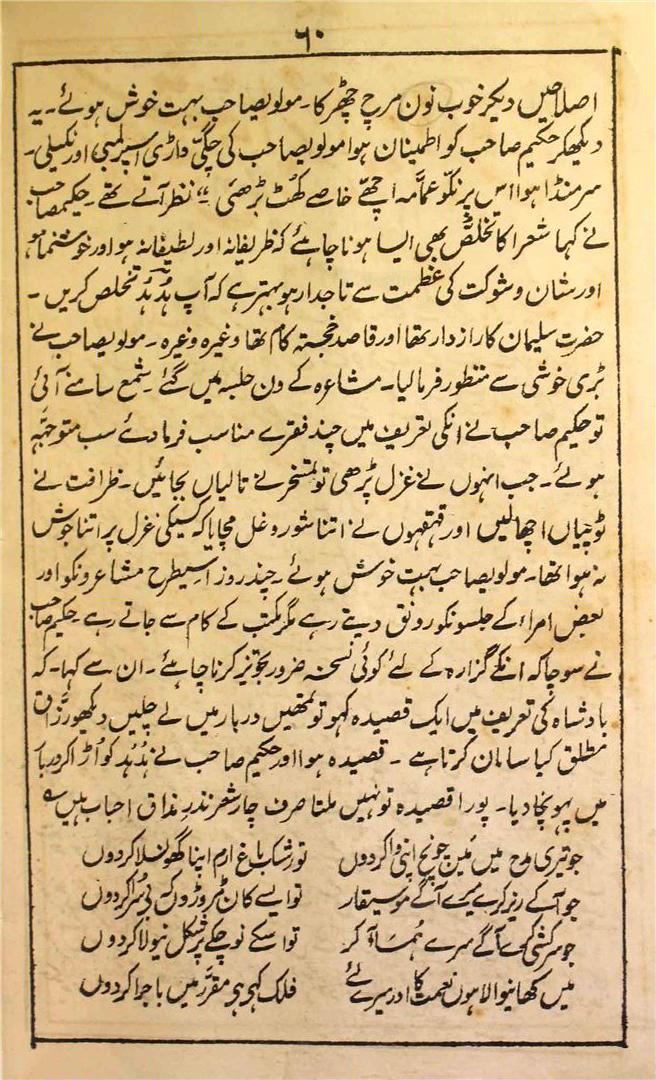 ۶۰
اصلاحیں دیکر خوب نون مرچ چھڑکا۔ مولویصاحب بہت خوش ہوئے۔ یہ
دیکھکر حکیم صاحب کو اطمینان ہوا مولویصاحب کی چگی داڑی اسپر لمبی اور نکیلی۔
سر منڈا ہوا اس پر نکو عمامہ اچھے خاصے کھٹ بڑھئی نظر آتے تھے۔ حکیمصاحب
نے کہا شعرا کا تخلص بھی ایسا ہونا چاہئے کہ ظریفانہ اور لطیفانہ ہو اور خوشنما ہو
اور شان و شوکت کی عظمت سے تاجدار ہو بہتر ہے کہ آپ ہُدہُد تخلص کریں۔
حضرت سلیمان کا رازدار تھا اور قاصد خجستہ گام تھا وغیرہ وغیرہ۔ مولویصاحب نے
بڑی خوشی سے منظور فرمالیا۔ مشاعرہ کے دن جلسہ میں گئے۔ شمع سامنے آئی
تو حکیم صاحب نے انکی تعریف میں چند فقرے مناسب فرمادئے سب متوجہ
ہوئے۔ جب انہوں نے غزل پڑھی تو تمسخر نے تالیاں بجائیں۔ ظرافت نے
ٹوپیاں اچھالیں اور قہقہوں نے اتنا شور و غل مچایا کہ کسیکی غزل پر اتنا جوش
نہ ہوا تھا۔ مولویصاحب بہت خوش ہوئے۔ چند روز اسیطرح مشاعرونکو اور
بعض امراء کے جلسونکو رونق دیتے رہے مگر مکتب کے کام سے جاتے رہے۔ حکیمصاحب
نے سوچا کہ انکے گزارہ کے لئے کوئی نسخہ ضرور تجویز کرنا چاہئے۔ ان سے کہا۔ کہ
بادشاہ کی تعریف میں ایک قصیدہ کہو تو تمھیں دربار میں لے چلیں دیکھو رزّاق
مطلق کیا سامان کرتا ہے۔ قصیدہ ہوا اور حکیم صاحب نے ہُدہُد کو اُڑا کر دربار
میں پہونچا دیا۔ پورا قصیدہ تو نہیں ملتا صرف چار شعر نذر مذاق احباب ہیں ؎
جو تیری مدح میں مَیں چونچ اپنی وا کردوں تو رشک باغ ارم اپنا گھونسلا کردوں
جو آکے ریز کرے میرے آگے موسیقار تو ایسے کان مروڑوں کہ بے سُرا کردوں
جو سرکشی کرے آگے مرے ہُما آکر تو اسکے نوچ کے پر شکل نیولا کردوں
میں کھانیوالا ہوں نعمت کا اور میرے لئے فلک کہے ہی مقرر میں باجرا کردوں